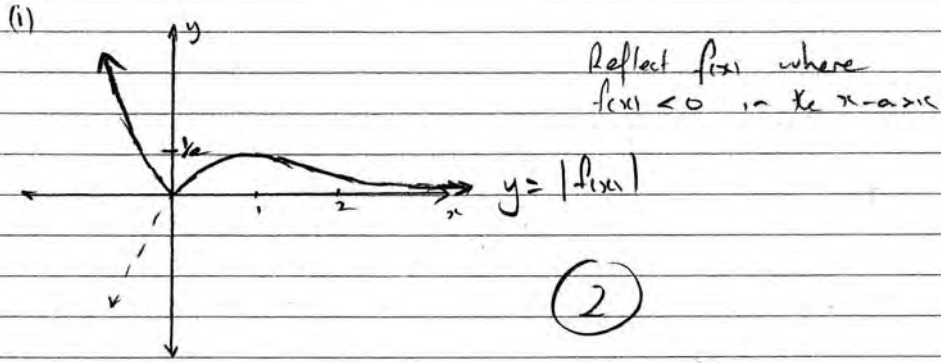 (i)
y
Reflect f(x) where
f(x) < 0 in the x-axis
1/e
y = |f(x)|
1 2 x
2